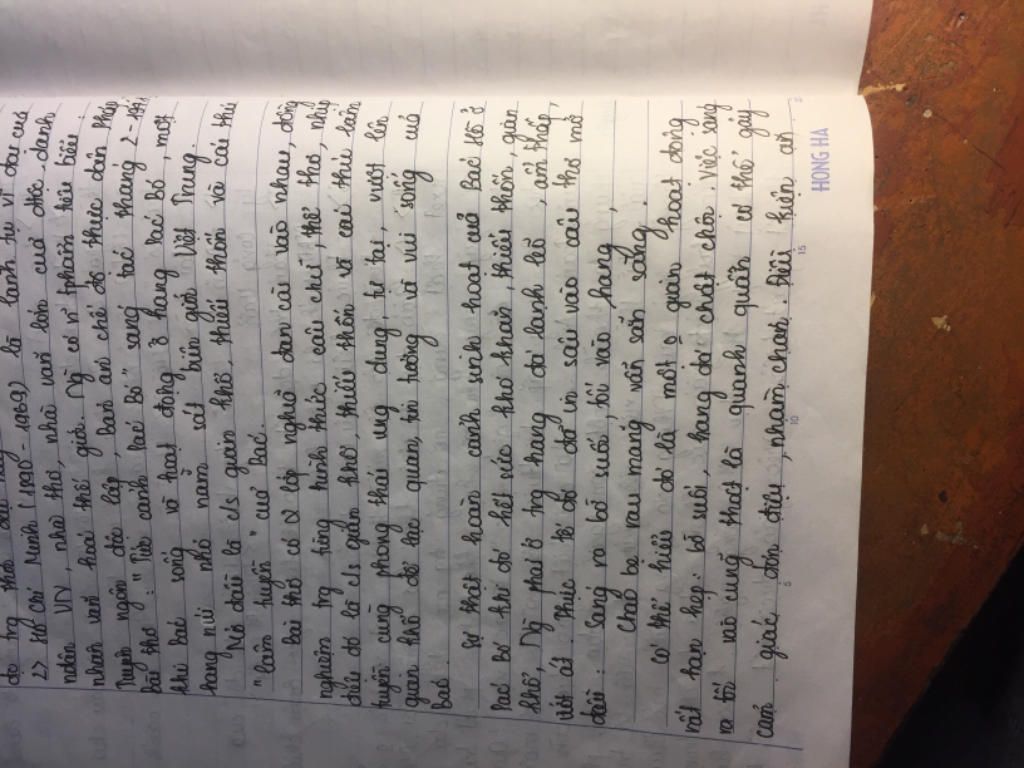 do trg thơ
2> Hồ Chí Minh (1890-1969) là lãnh tụ vĩ đại của
nhân VN, nhà thơ, nhà văn lớn của dtộc, danh
nhân văn hoá thế giới. Ng có vị phẩm tiêu biểu:
Tuyên ngôn độc lập, bản án chế độ thực dân Pháp
bài thơ: "Tức cảnh Pác Bó" sáng tác tháng 2-1941
khi Bác sống và hoạt động ở hang Pác Bó, một
hang núi nhỏ nằm sát biên giới Việt Trung.
Nó đấu là c/s gian khổ, thiếu thốn và cái thú
"lâm tuyền" của Bác.
bài thơ có 2 lớp nghĩa đan cài vào nhau, đồng
nghiệm trg từng hình thức câu chữ, thể thơ, nhịp
điệu đó là c/s gian khổ, thiếu thốn và cái thú lâm
tuyền cùng phong thái ung dung, tự tại, vượt lên
gian khổ để lạc quan, tin tưởng và vui sống của
Bác
Sự thật hoàn cảnh sinh hoạt của Bác Hồ ở
Pác Bó khi đó hết sức khó khăn, thiếu thốn, gian
khổ, Ng phải ở trg hang đá lạnh lẽo, ẩm thấp,
ướt át. Thực tế đó đã in sâu vào câu thơ mở
đầu: Sáng ra bờ suối, tối vào hang,
Cháo bẹ rau măng vẫn sẵn sàng.
có thể hiểu đó là một o gian hoạt động
rất hạn hẹp: bờ suối, hang đá chật chội. Việc sáng
ra tối vào cũng thật là quanh quẩn có thể gây
cảm giác đơn điệu, nhàm chán. Điều kiện ăn
5 10 15
HONG HA